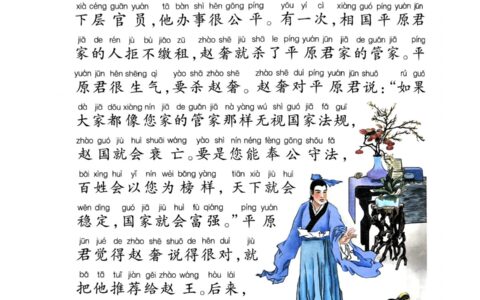 xià céng guān yuán tā bàn shì hěn gōng píng yǒu yí cì xiàng guó píng yuán jūn
下层官员，他办事很公平。有一次，相国平原君
jiā de rén jù bù jiǎo zū zhào shē jiù shā le píng yuán jūn jiā de guǎn jiā píng
家的人拒不缴租，赵奢就杀了平原君家的管家。平
yuán jūn hěn shēng qì yào shā zhào shē zhào shē duì píng yuán jūn shuō rú guǒ
原君很生气，要杀赵奢。赵奢对平原君说：“如果
dà jiā dōu xiàng nín jiā de guǎn jiā nà yàng wú shì guó jiā fǎ guī
大家都像您家的管家那样无视国家法规，
zhào guó jiù huì shuāi wáng yào shì nín néng fèng gōng shǒu fǎ
赵国就会衰亡。要是您能奉公守法，
bǎi xìng huì yǐ nín wéi bǎng yàng tiān xià jiù huì
百姓会以您为榜样，天下就会
wěn dìng guó jiā jiù huì fù qiáng píng yuán
稳定，国家就会富强。”平原
jūn jué de zhào shē shuō de hěn duì jiù
君觉得赵奢说得很对，就
bǎ tā tuī jiàn gěi zhào wáng hòu lái
把他推荐给赵王。后来，